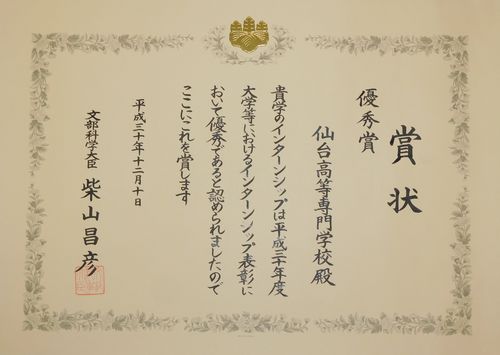 賞状
優秀賞
仙台高等専門学校殿
貴学のインターンシップは平成三十年度
大学等におけるインターンシップ表彰に
おいて優秀であると認められましたので
ここにこれを賞します
平成三十年十二月十日
文部科学大臣 柴山昌彦